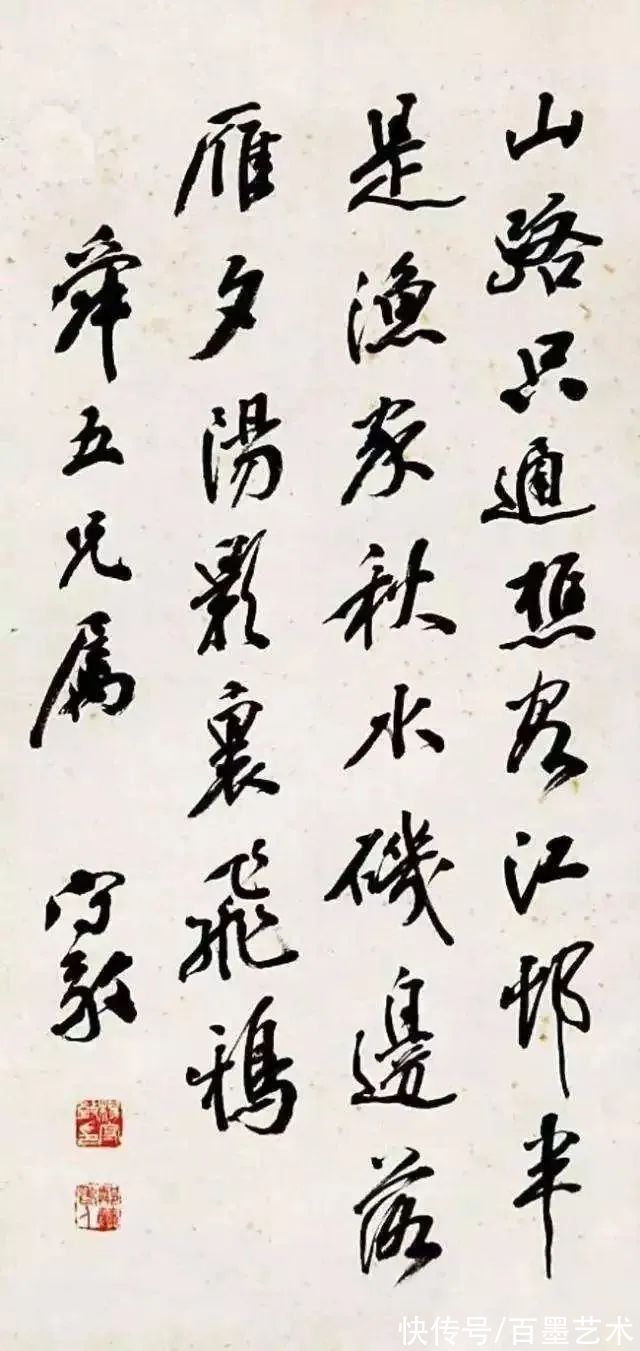 山路只通樵客江邨半
是漁家秋水磯邊落
雁夕陽影裏飛鴉
舜五兄屬 守敬
快传号/百墨艺术